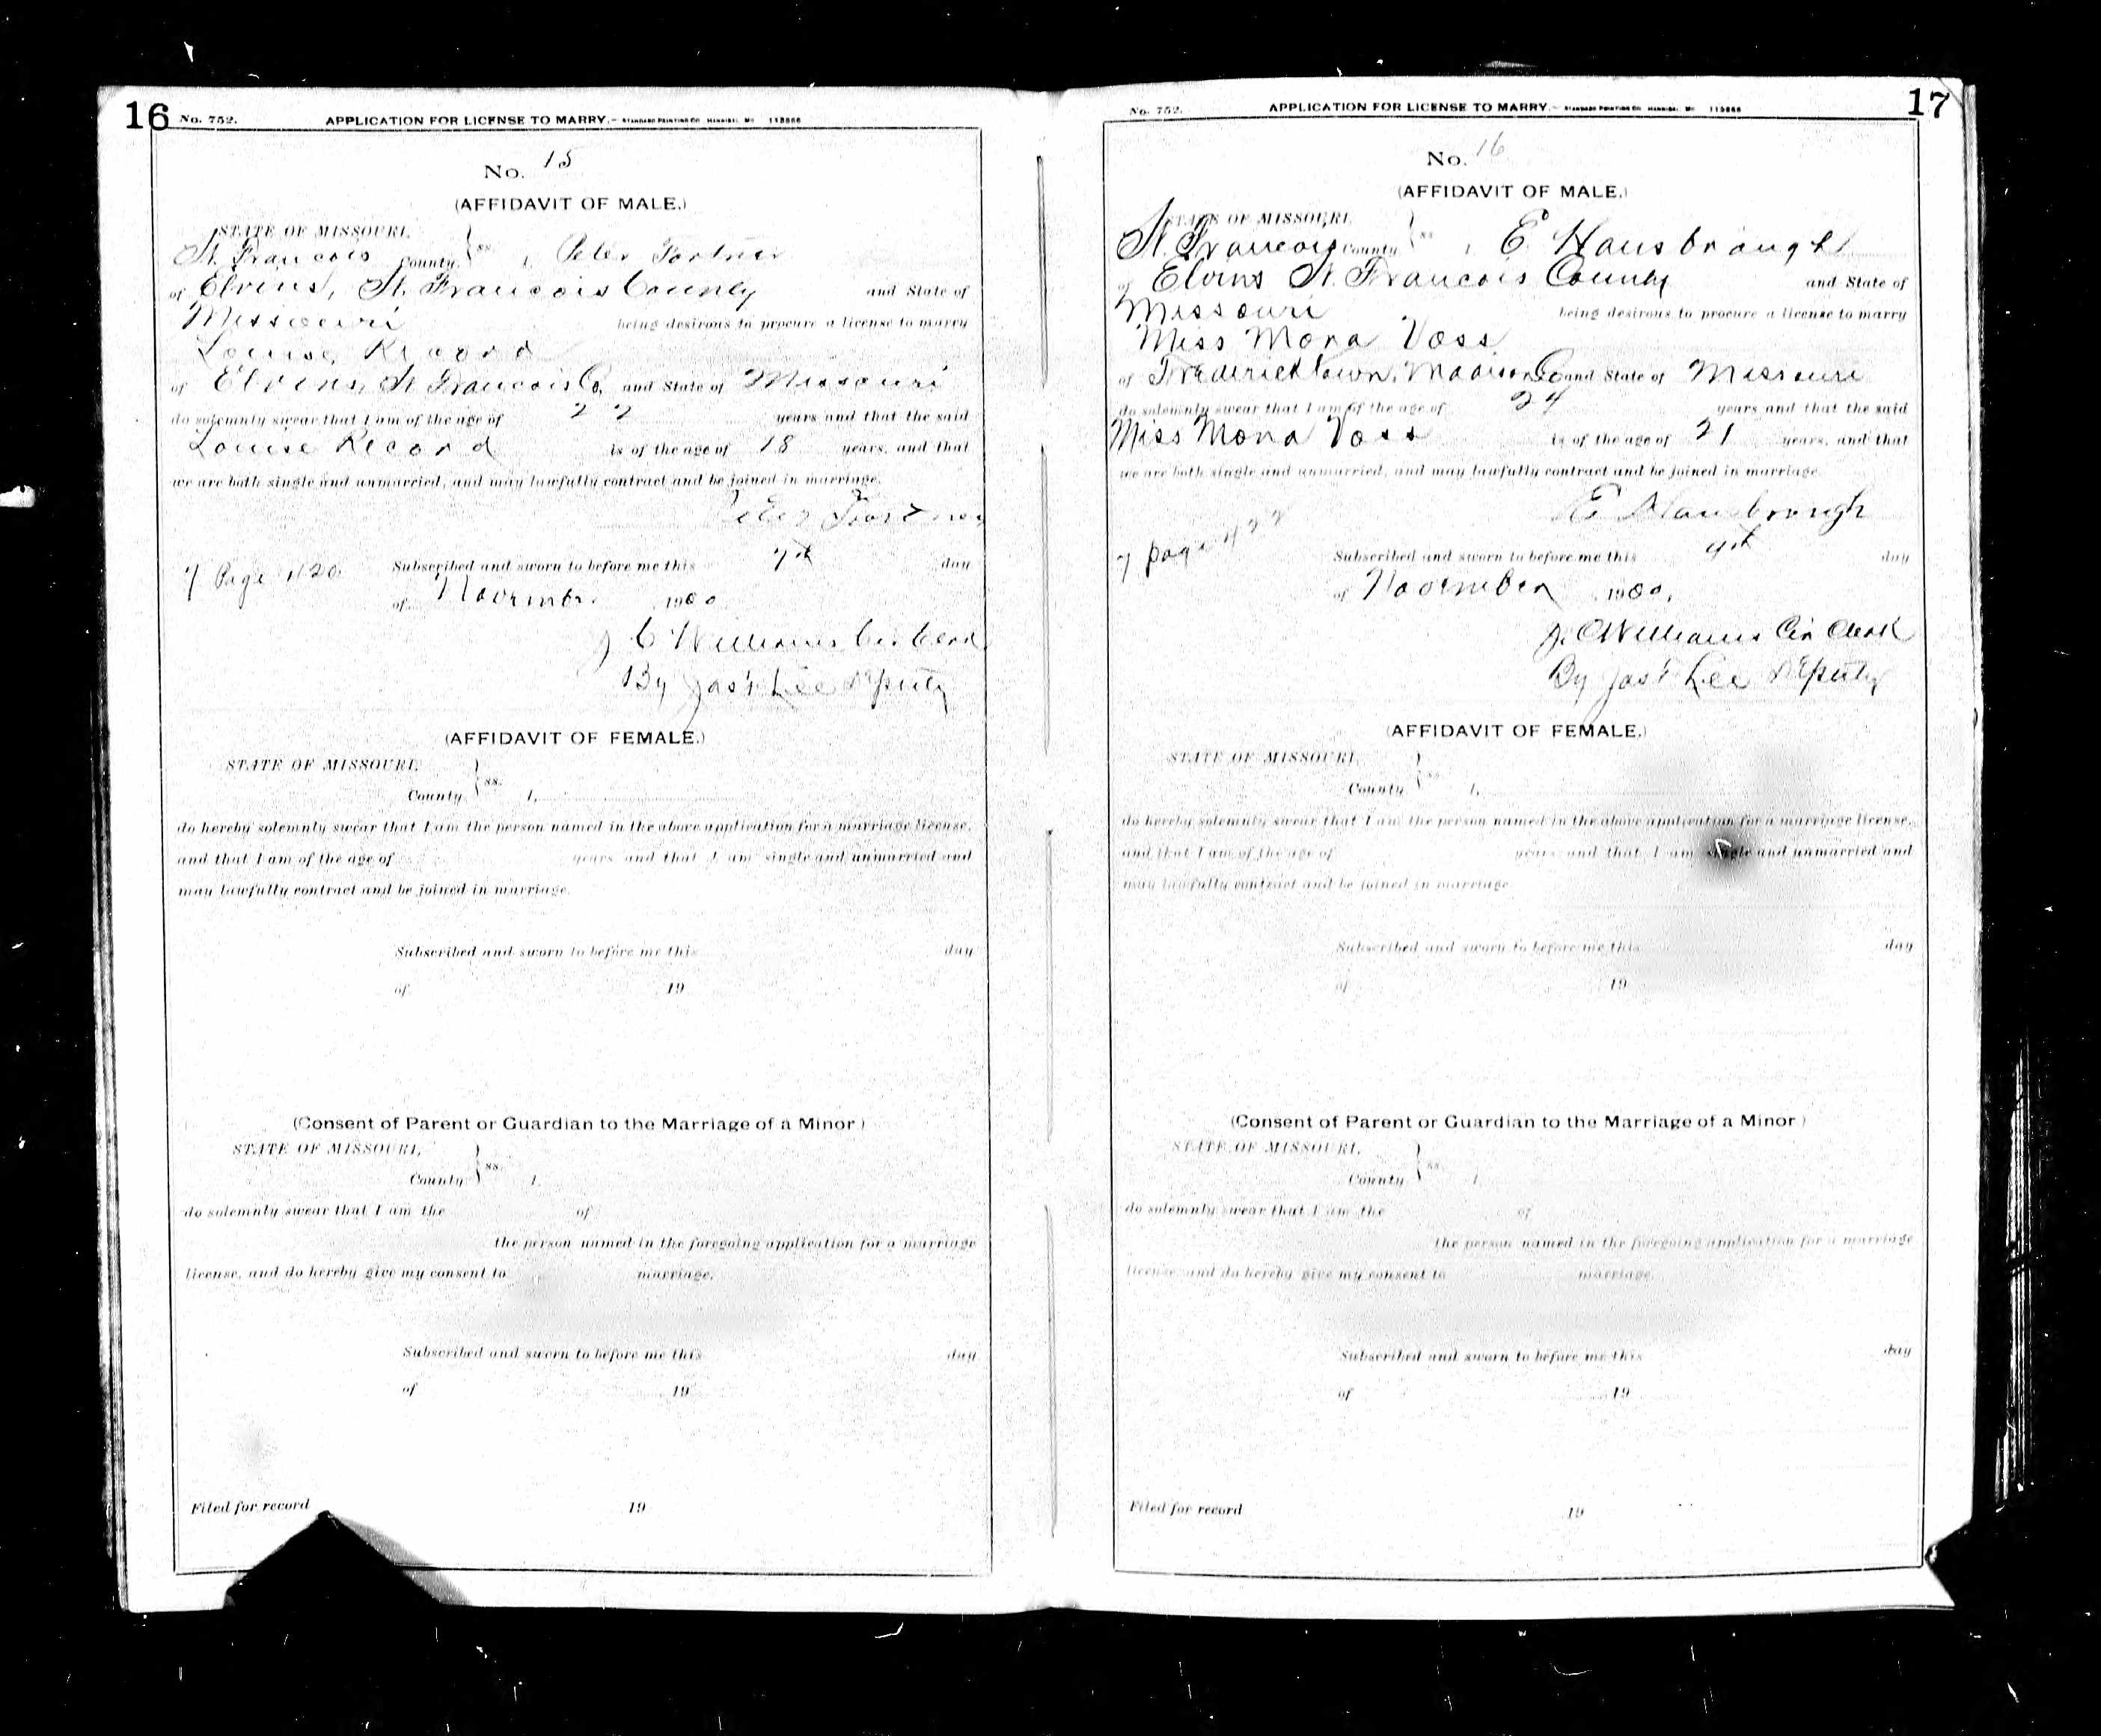 16 No. 752. APPLICATION FOR LICENSE TO MARRY.— STANDARD PRINTING CO. HANNIBAL, MO. 113866
No. 15
(AFFIDAVIT OF MALE.)
STATE OF MISSOURI,
St. Francois County. } ss. I, Peter Fortner
of Elvins, St. Francois County and State of
Missouri being desirous to procure a license to marry
Louise Record
of Elvins, St Francois Co, and State of Missouri
do solemnly swear that I am of the age of 22 years and that the said
Louise Record is of the age of 18 years, and that
we are both single and unmarried, and may lawfully contract and be joined in marriage.
Peter Fortner
Subscribed and sworn to before me this 7th day
7 Page 420
of November 1900
J C Williams Cir Clerk
By Jas Lee Deputy
(AFFIDAVIT OF FEMALE.)
STATE OF MISSOURI,
County. } ss. I,
do hereby solemnly swear that I am the person named in the above application for a marriage license,
and that I am of the age of years and that I am single and unmarried and
may lawfully contract and be joined in marriage.
Subscribed and sworn to before me this day
of 19
(Consent of Parent or Guardian to the Marriage of a Minor)
STATE OF MISSOURI,
County } ss. I,
do solemnly swear that I am the of
the person named in the foregoing application for a marriage
license, and do hereby give my consent to marriage.
Subscribed and sworn to before me this day
of 19
Filed for record 19
No. 752. APPLICATION FOR LICENSE TO MARRY.— STANDARD PRINTING CO. HANNIBAL, MO. 113866 17
No. 16
(AFFIDAVIT OF MALE.)
STATE OF MISSOURI,
St. Francois County } ss I E. Hansbrough
of Elvins St. Francois County and State of
Missouri being desirous to procure a license to marry
Miss Mona Voss
of Fredericktown, Madison Co and State of Missouri
do solemnly swear that I am of the age of 24 years and that the said
Miss Mona Voss is of the age of 21 years, and that
we are both single and unmarried, and may lawfully contract and be joined in marriage.
E Hansbrough
7 page 422
Subscribed and sworn to before me this 9th day
of November 1900.
J. C Williams Cir Clerk
By Jas Lee Deputy
(AFFIDAVIT OF FEMALE.)
STATE OF MISSOURI,
County } ss. I,
do hereby solemnly swear that I am the person named in the above application for a marriage license,
and that I am of the age of years and that I am single and unmarried and
may lawfully contract and be joined in marriage
Subscribed and sworn to before me this day
of 19
(Consent of Parent or Guardian to the Marriage of a Minor)
STATE OF MISSOURI,
County } ss. I,
do solemnly swear that I am the of
the person named in the foregoing application for a marriage
license, and do hereby give my consent to marriage.
Subscribed and sworn to before me this day
of 19
Filed for record 19